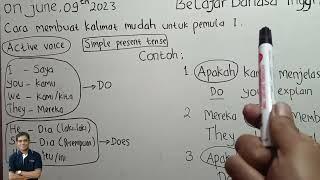 on june, 09th 2023
Belajar Bahasa Inggri
Cara membuat kalimat mudah untuk pemula 1.
Active voice
Simple present tense
Contoh:
I - Saya
you - kamu
we - kami/kita
They - Mereka
→ DO
Dia (laki-laki)
Dia (Perempuan)
itu/ini
→ Does
1 Apakah kam menjelas
Do you explain
2 Mereka Memb
They
3 Apakah
D